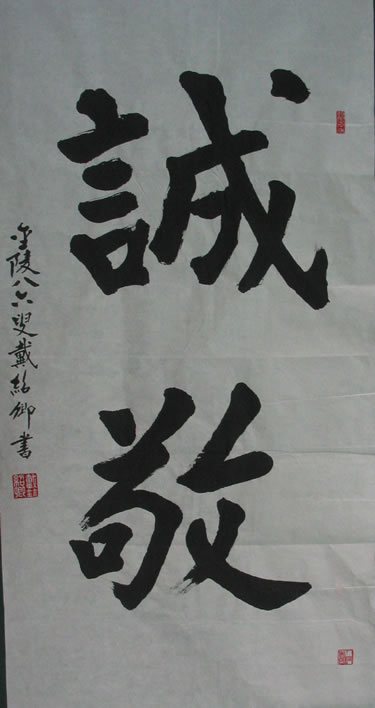 誠
敬
金陵八六叟戴紹卿書